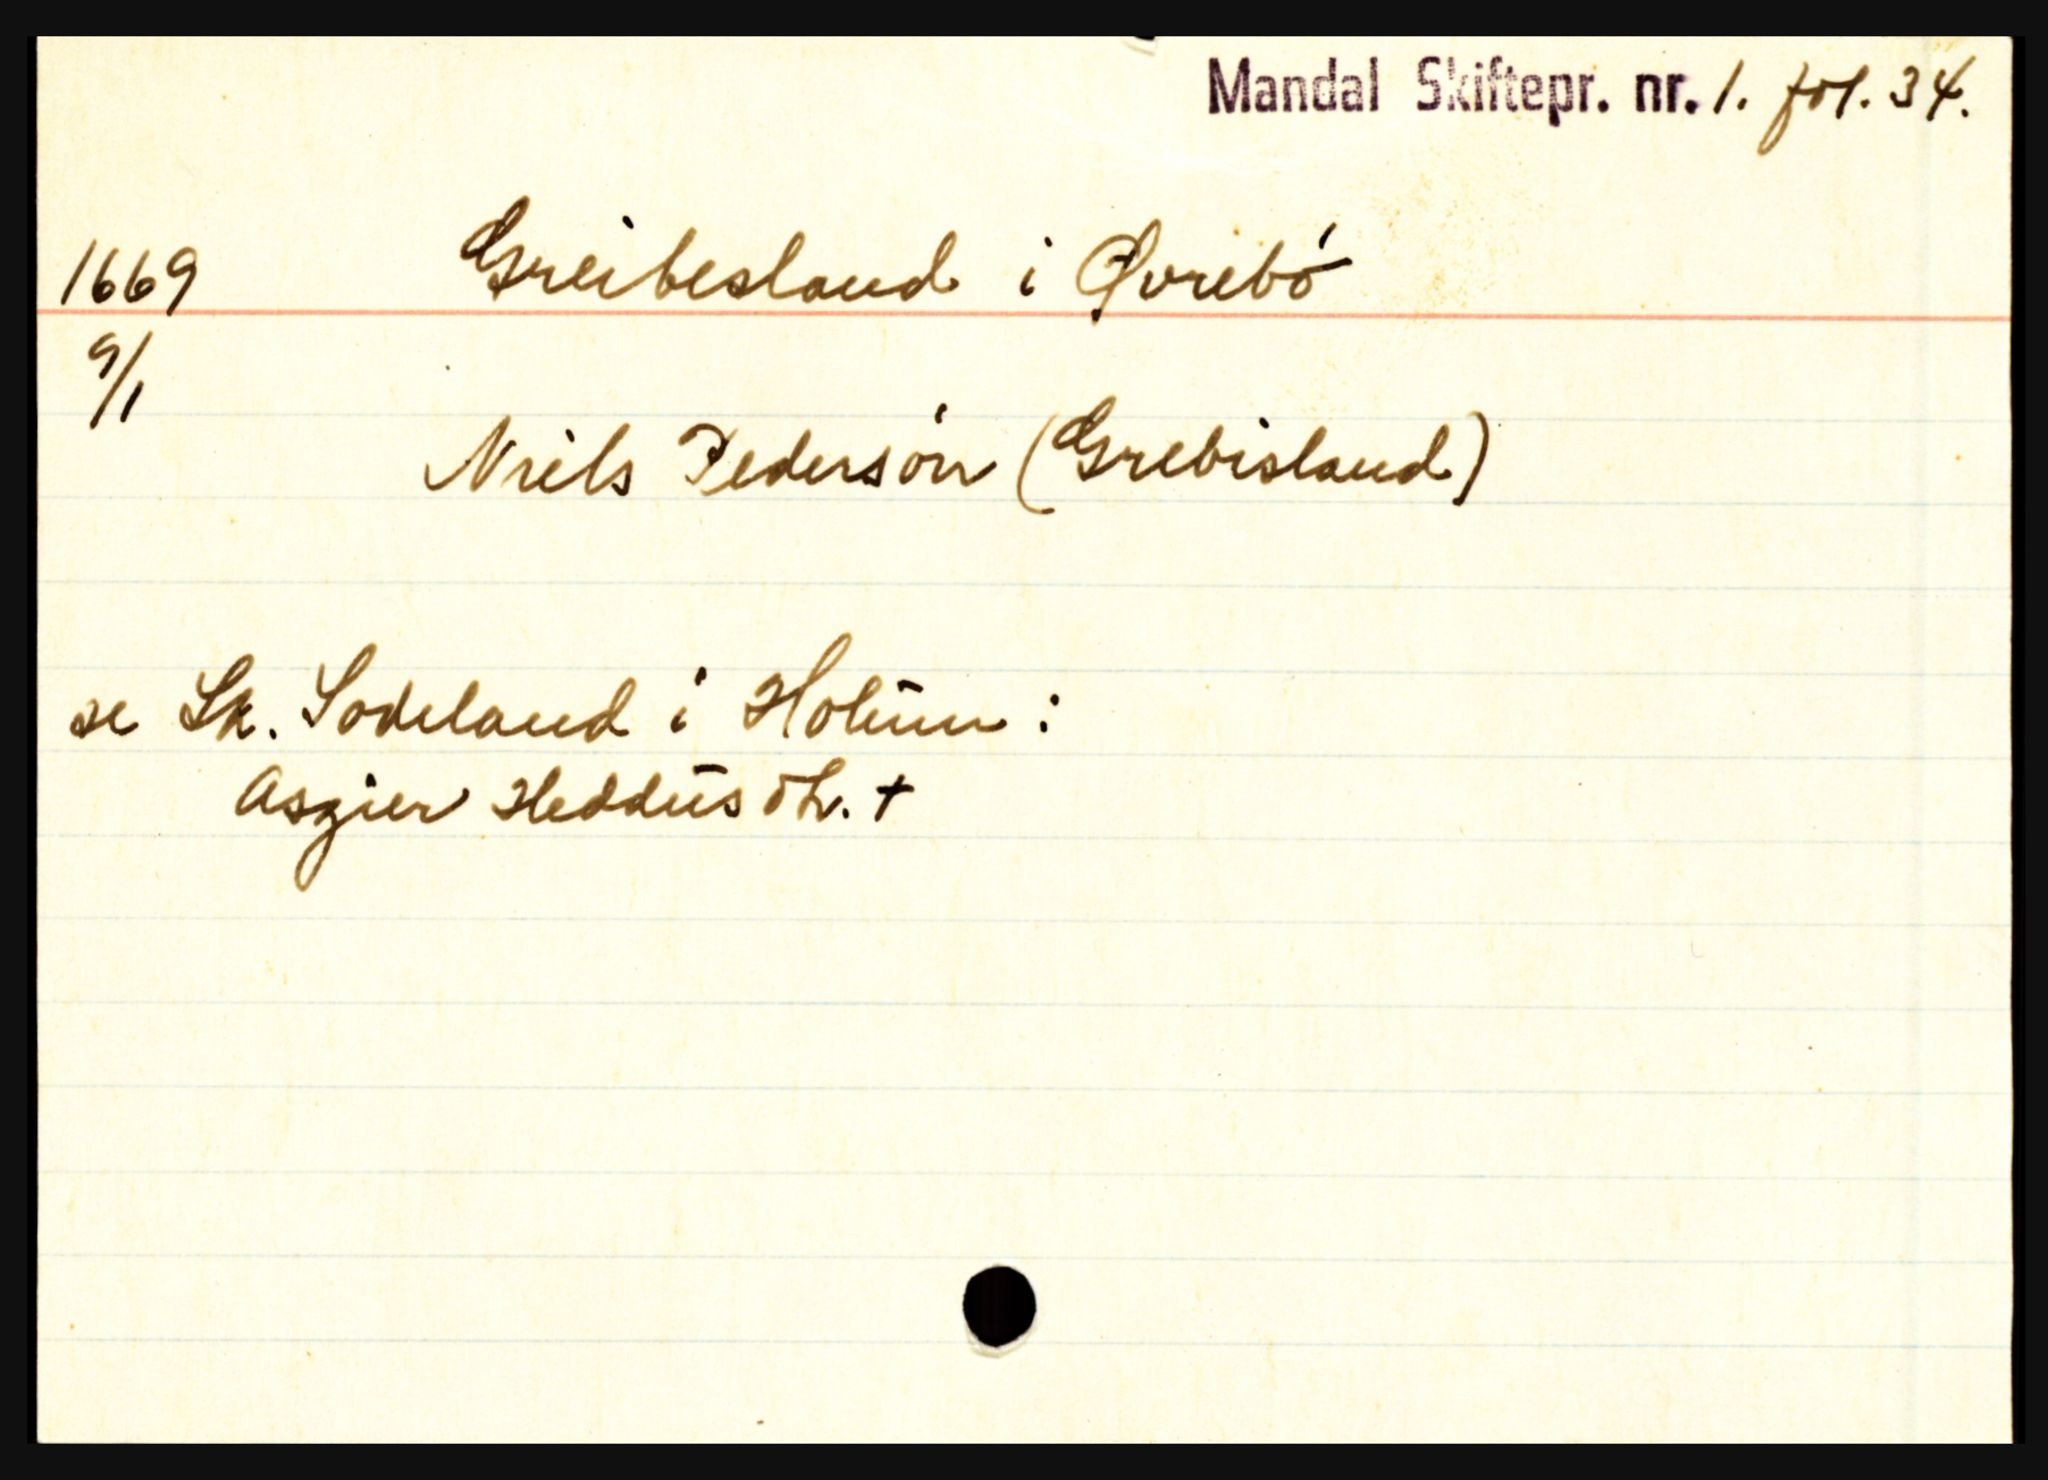 Mandal Skiftepr. nr. 1. fol. 34.
1669 Greibesland i Øvrebó
9/1
Niels Pedersön (Grebisland)
se Sk. Sodeland i Holum:
Aszier Heddus dtr. +